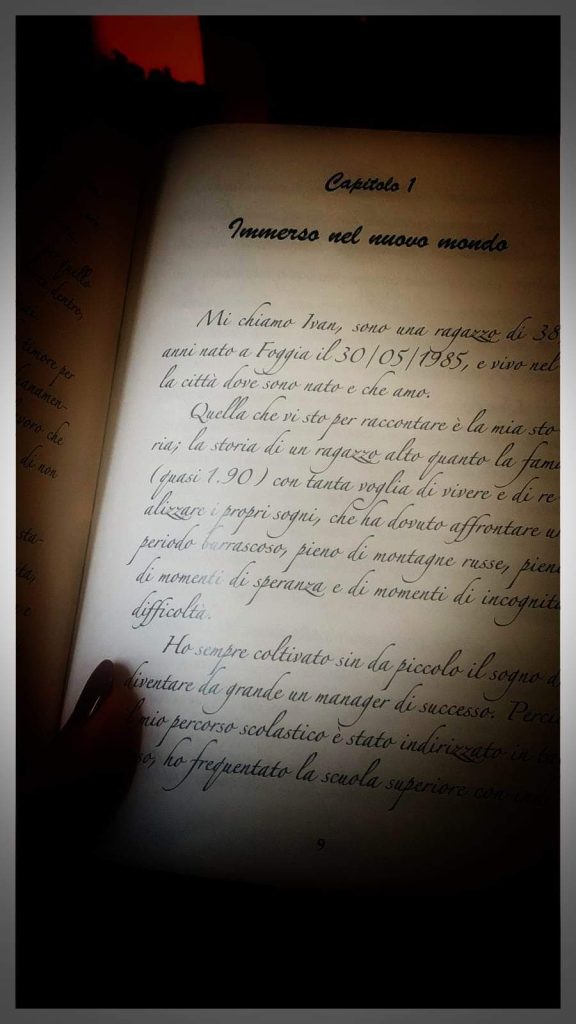 Capitolo 1
Immerso nel nuovo mondo
Mi chiamo Ivan, sono una ragazzo di 38
anni nato a Foggia il 30/05/1985, e vivo nel
la città dove sono nato e che amo.
Quella che vi sto per raccontare è la mia sto
ria; la storia di un ragazzo alto quanto la fam
(quasi 1.90) con tanta voglia di vivere e di re
alizzare i propri sogni, che ha dovuto affrontare u
periodo burrascoso, pieno di montagne russe, pien
di momenti di speranza e di momenti di incognit
difficoltà.
Ho sempre coltivato sin da piccolo il sogno d
diventare da grande un manager di successo. Perci
l mio percorso scolastico è stato indirizzato in
so, ho frequentato la scuola superiore
9
quello
dentro,
more per
anamen-
voro che
di non
sta-